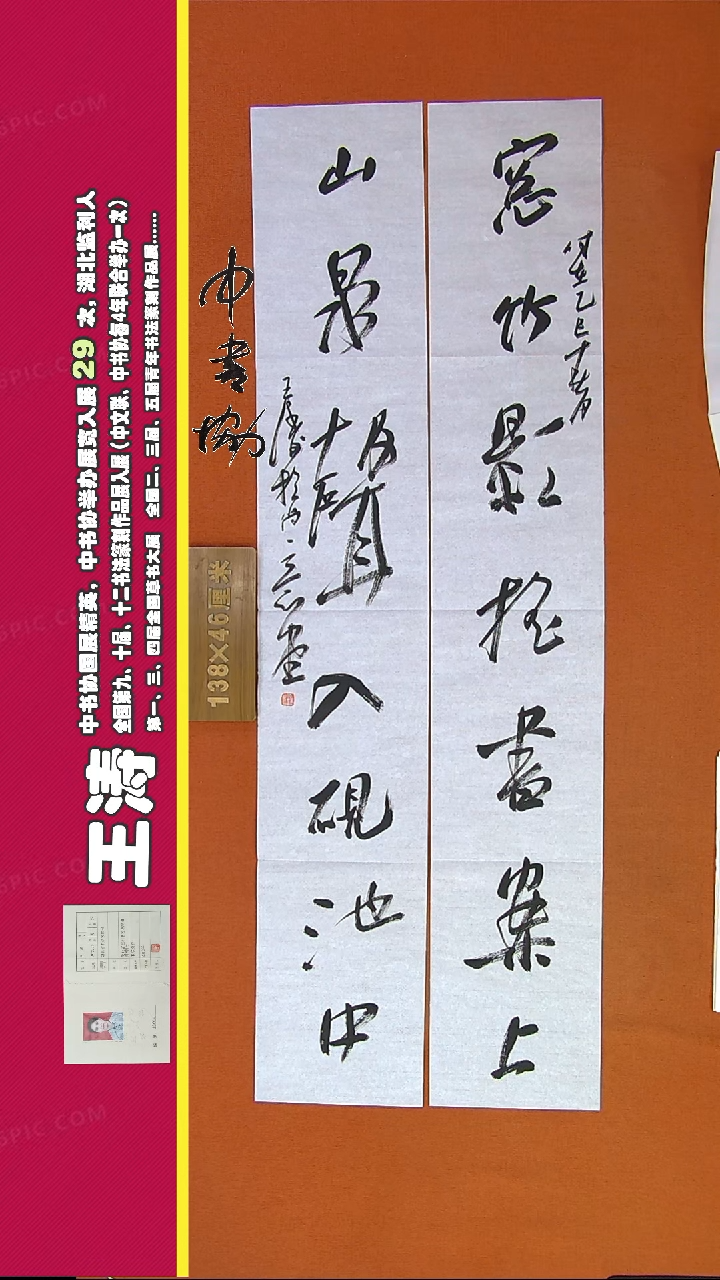 窓竹影摇書案上
山泉聲入硯池中
中书协
138×46厘米
王涛
中书协国展精英，中书协举办展览入展29次，湖北监利人
全国第九、十届、十二书法篆刻作品展入展（中文联、中书协每4年联合举办一次）
第一、三、四届全国草书大展 全国二、三届、五届青年书法篆刻作品展……